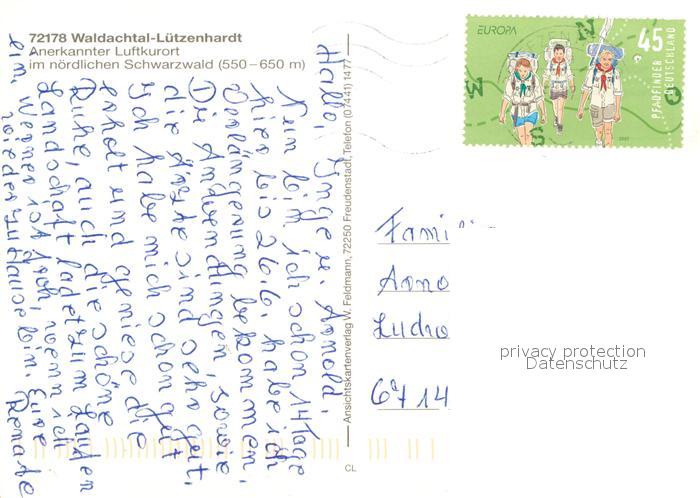 72178 Waldachtal-Lützenhardt
Anerkannter Luftkurort
im nördlichen Schwarzwald (550–650 m)
Hallo, Inge u. Arnold,
Nun bin ich schon 14 Tage
hier bis 26.6. habe ich
Verlängerung bekommen.
Die Anwendungen, sowie
die Ärzte sind sehr gut.
Ich habe mich schon gut
erholt und geniese die
Ruhe, auch die schöne
Landschaft ladet zum Laufen
ein. Werner ist froh, wenn ich
wieder zuhause bin. Eure
Renate
Ansichtskartenverlag W. Feldmann, 72250 Freudenstadt, Telefon (07441) 1477
CL
EUROPA
45
PFADFINDER
DEUTSCHLAND
N
W
S
O
2007
Fami
Arno
Ludw
6714
privacy protection
Datenschutz